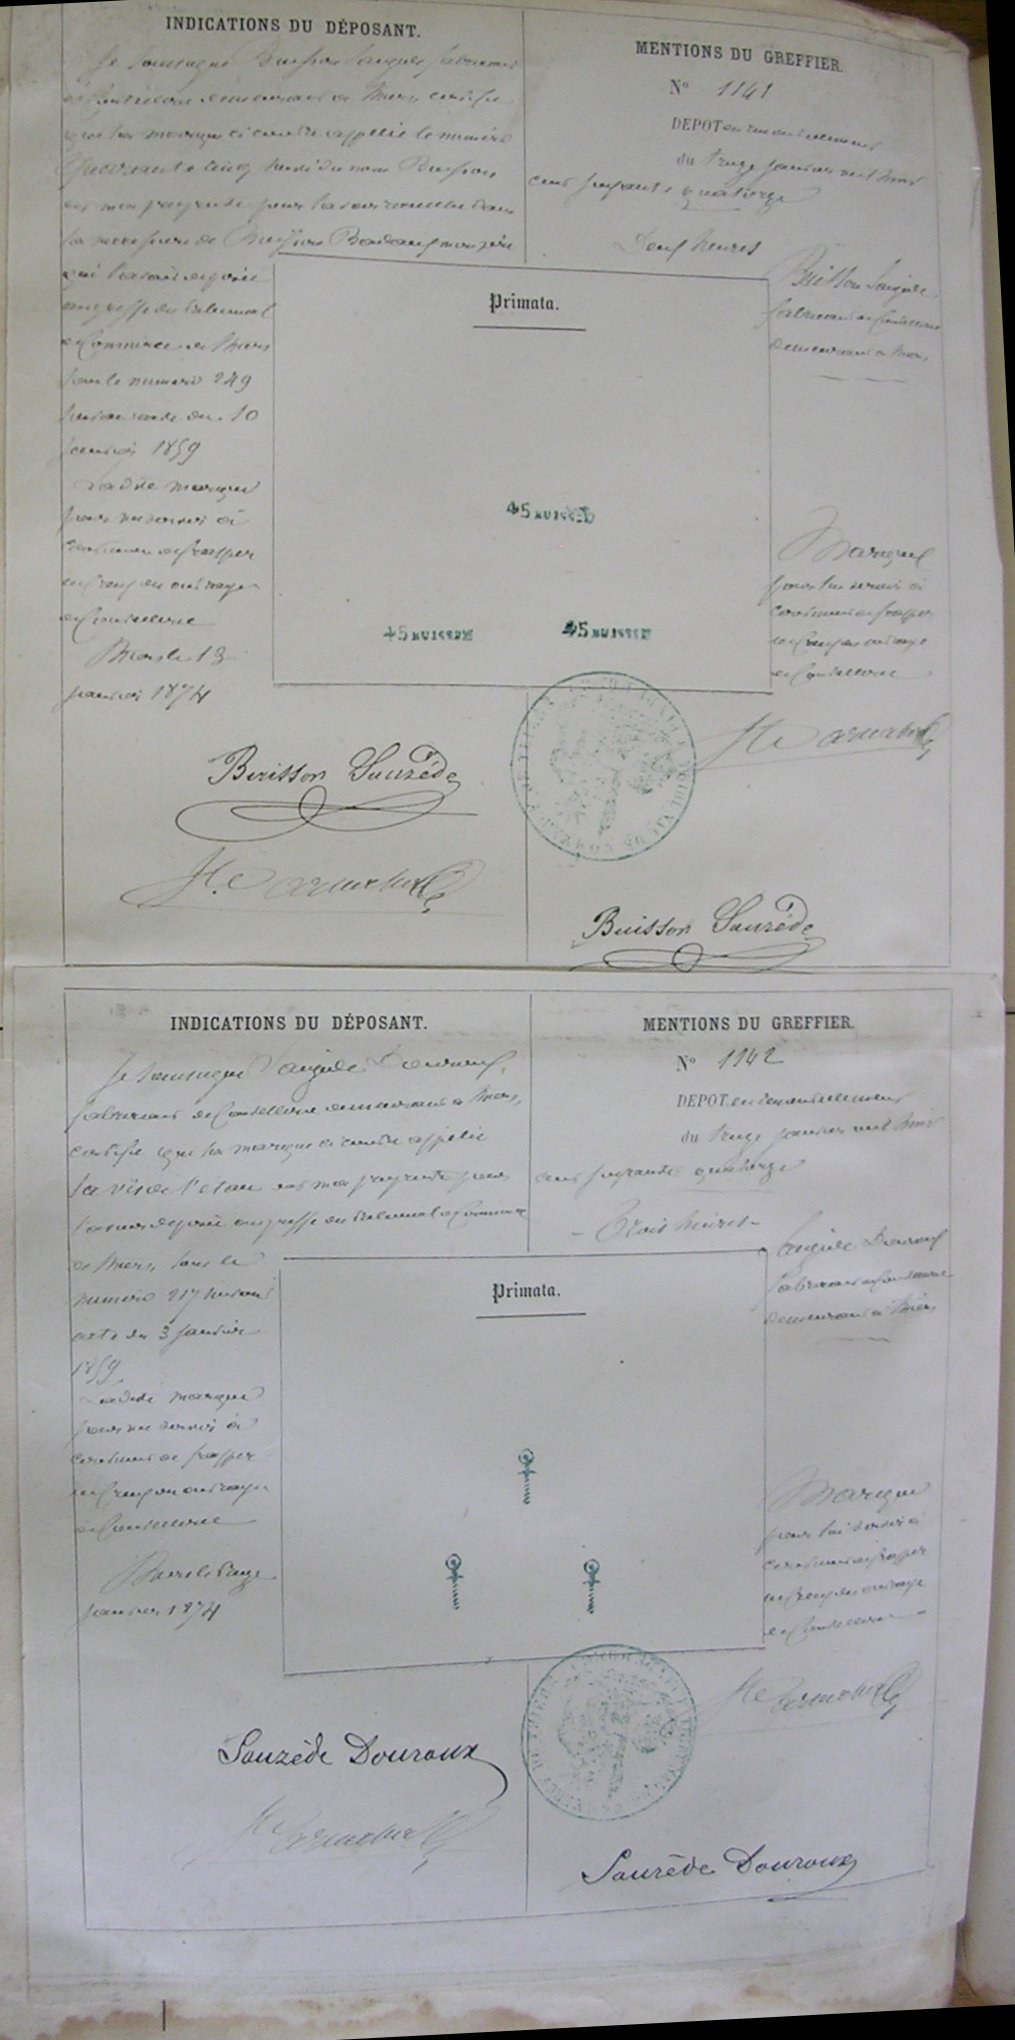 INDICATIONS DU DÉPOSANT.
Je soussigné Buisson Sauzède fabricant
de Coutellerie demeurant à Thiers, certifie
que la marque ci contre appelée le numéro
Quarante cinq suivi du nom Buisson
est ma propriété pour
la succession de Buisson mon père
qui l'avait déposée
au greffe du Tribunal
de Commerce de Thiers
sous le numéro 249
suivant acte du 10
janvier 1859
Ladite marque
pour me servir à
continuer de frapper
en creux les ouvrages
de Coutellerie
Thiers le 13
janvier 1874
Buisson Sauzède
MENTIONS DU GREFFIER.
N° 1141
DEPOT en renouvellement
du treize janvier mil huit
cent soixante quatorze
Deux heures
Buisson Sauzède
fabricant de Coutellerie
demeurant à Thiers
Primata.
45 BUISSON
45 BUISSON
45 BUISSON
Marque
pour lui servir à
continuer de frapper
en creux les ouvrages
de Coutellerie
Buisson Sauzède
INDICATIONS DU DÉPOSANT.
Je soussigné Sauzède Douroux,
fabricant de Coutellerie demeurant à Thiers,
certifie que la marque ci contre appelée
la vis de l'étau est ma propriété pour
l'avoir déposée au greffe du Tribunal de Commerce
de Thiers sous le
numéro 217 suivant
acte du 3 janvier
1859
Ladite marque
pour me servir à
continuer de frapper
en creux les ouvrages
de Coutellerie
Thiers le treize
janvier 1874
Sauzède Douroux
MENTIONS DU GREFFIER.
N° 1142
DEPOT en renouvellement
du treize janvier mil huit
cent soixante quatorze
- Trois heures -
Sauzède Douroux
fabricant de Coutellerie
demeurant à Thiers
Primata.
Marque
pour lui servir à
continuer de frapper
en creux les ouvrages
de Coutellerie
Sauzède Douroux